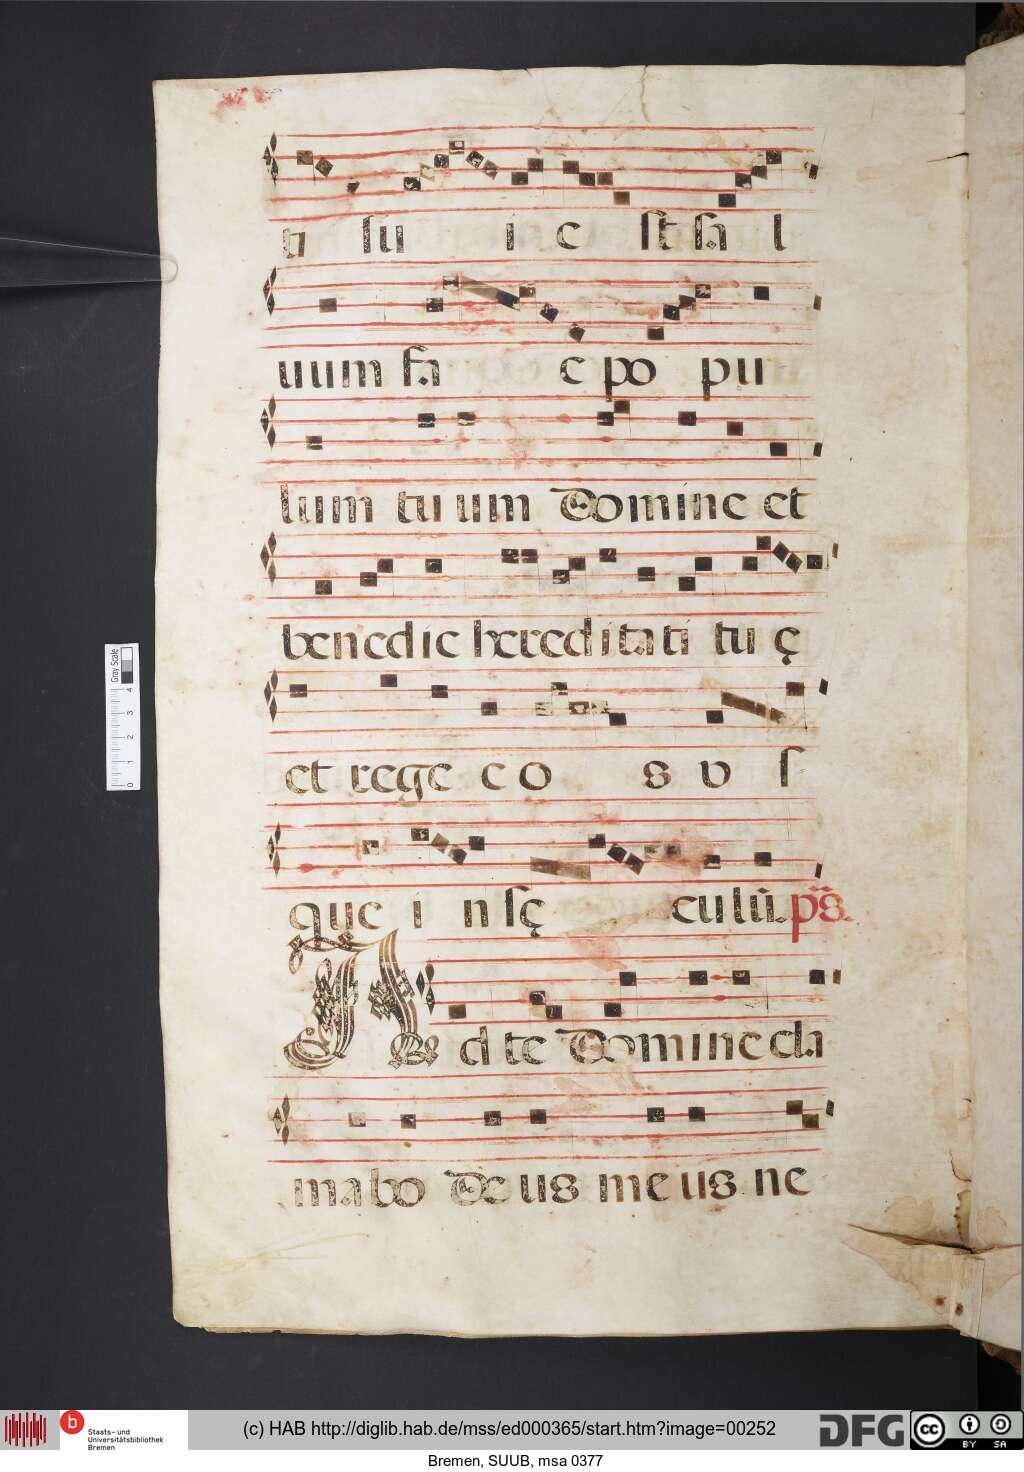 ti su i e st sa l
uum fa c po pu
lum tu um Domine et
benedic hereditati tu ę
et rege e o s v s
que i n sę culũ. ps̃.
Ad te Domine cla
mabo De us me us ne
Gray Scale
0 1 2 3 4
b
Staats- und
Universitätsbibliothek
Bremen
(c) HAB http://diglib.hab.de/mss/ed000365/start.htm?image=00252
DFG
cc BY SA
Bremen, SUUB, msa 0377